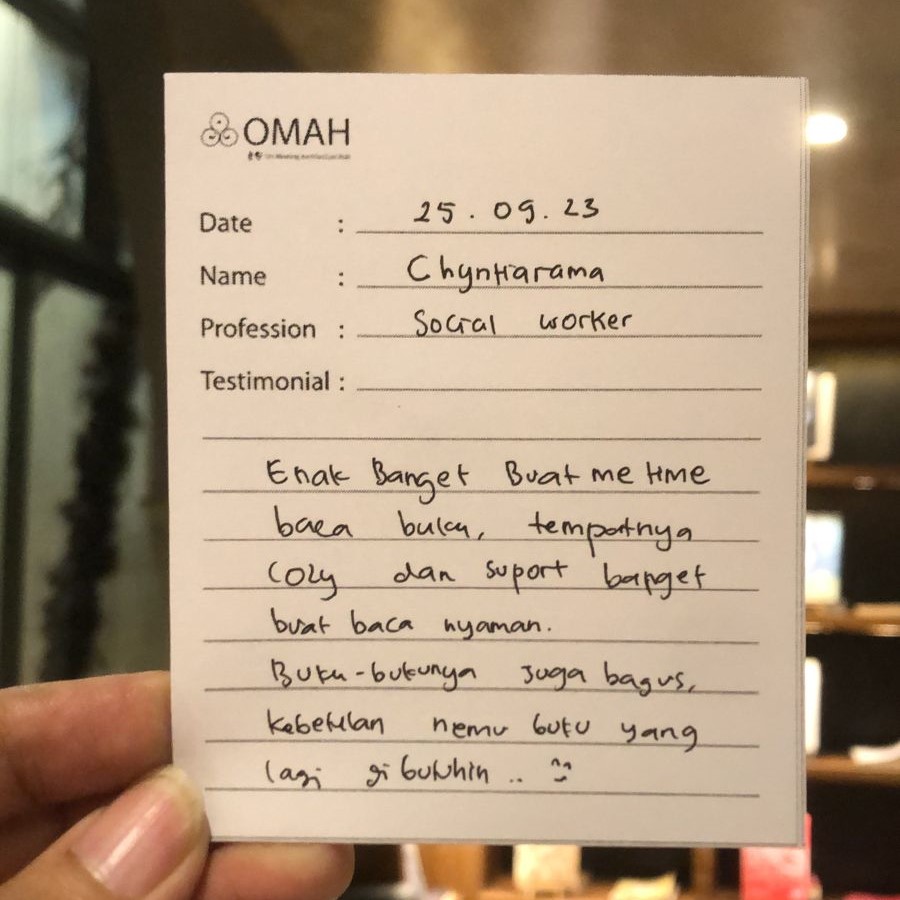 OMAH
Date : 25.09.23
Name : Chyntiarama
Profession : Social worker
Testimonial :
Enak Banget Buat me time
baca buku, tempatnya
Cozy dan suport banget
buat baca nyaman.
Buku-bukunya Juga bagus,
kebetulan nemu buku yang
lagi di butuhin ..